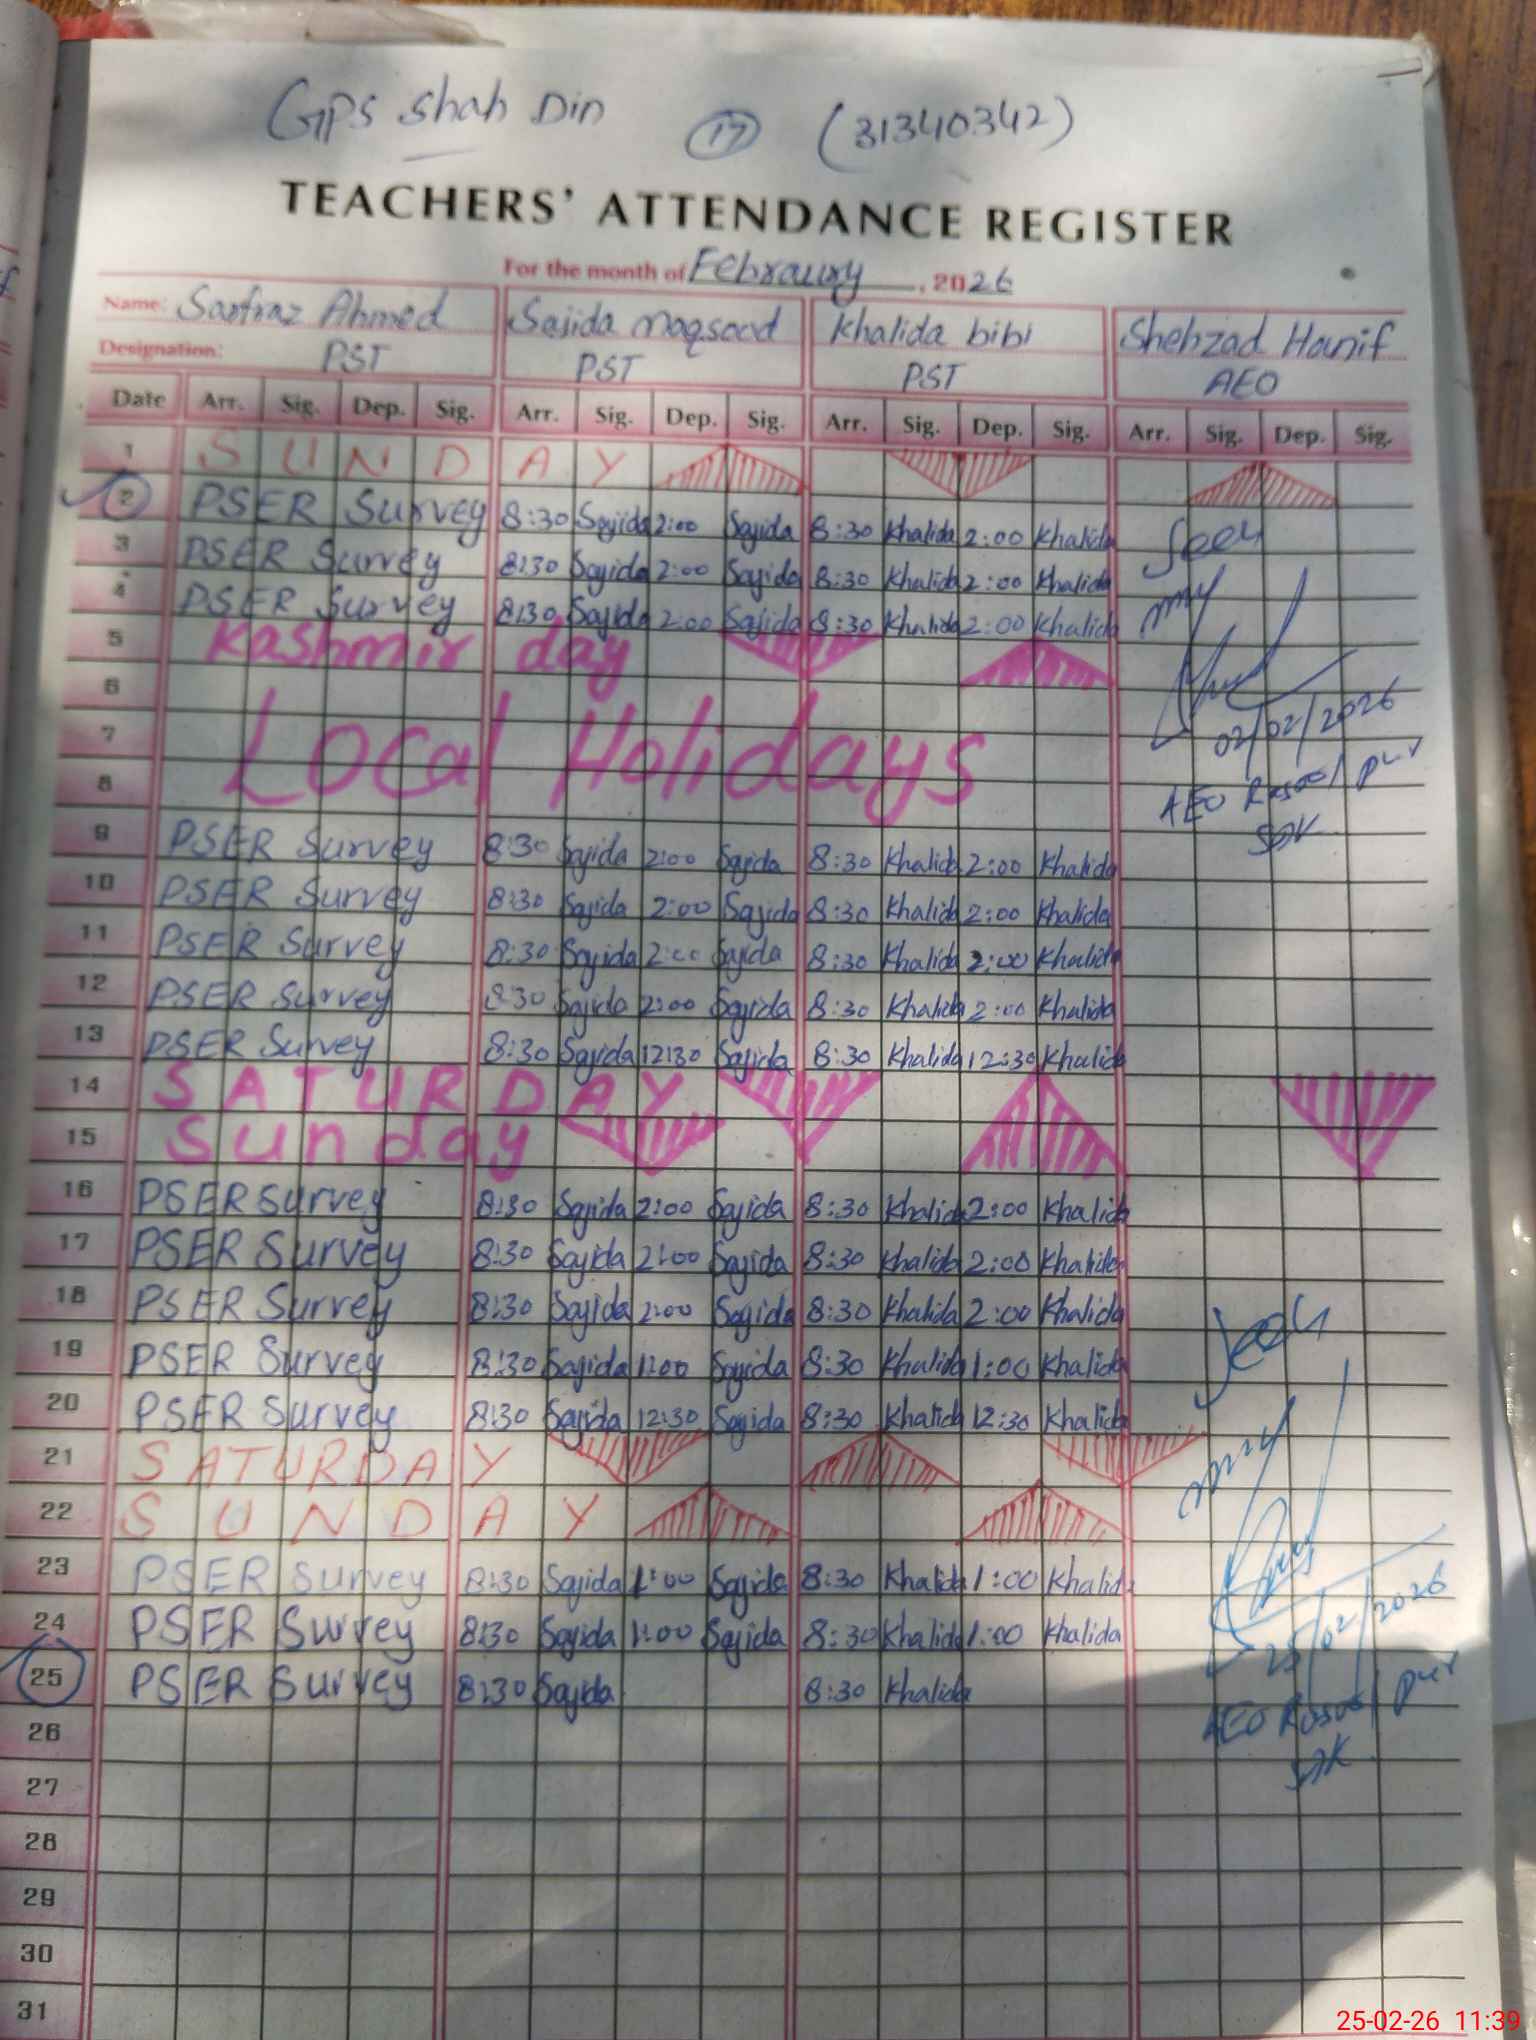 GPS Shah Din (17) (31340342)
TEACHERS' ATTENDANCE REGISTER
For the month of Febraury, 2026
Name: Sarfraz Ahmed Sajida Maqsood Khalida bibi Shehzad Hanif
Designation: PST PST PST AEO
Date Arr. Sig. Dep. Sig. Arr. Sig. Dep. Sig. Arr. Sig. Dep. Sig. Arr. Sig. Dep. Sig.
1 SUNDAY
2 PSER Survey 8:30 Sajida 2:00 Sajida 8:30 Khalida 2:00 Khalida Seen
3 PSER Survey 8:30 Sajida 2:00 Sajida 8:30 Khalida 2:00 Khalida
4 PSER Survey 8:30 Sajida 2:00 Sajida 8:30 Khalida 2:00 Khalida
5 Kashmir day
6
02/02/2026
7 Local Holidays
AEO Rasool pur
8
SDK
9 PSER Survey 8:30 Sajida 2:00 Sajida 8:30 Khalida 2:00 Khalida
10 PSER Survey 8:30 Sajida 2:00 Sajida 8:30 Khalida 2:00 Khalida
11 PSER Survey 8:30 Sajida 2:00 Sajida 8:30 Khalida 2:00 Khalida
12 PSER Survey 8:30 Sajida 2:00 Sajida 8:30 Khalida 2:00 Khalida
13 PSER Survey 8:30 Sajida 12:30 Sajida 8:30 Khalida 12:30 Khalida
14 SATURDAY
15 Sunday
16 PSER Survey 8:30 Sajida 2:00 Sajida 8:30 Khalida 2:00 Khalida
17 PSER Survey 8:30 Sajida 2:00 Sajida 8:30 Khalida 2:00 Khalida
18 PSER Survey 8:30 Sajida 2:00 Sajida 8:30 Khalida 2:00 Khalida
Seen
19 PSER Survey 8:30 Sajida 1:00 Sajida 8:30 Khalida 1:00 Khalida
20 PSER Survey 8:30 Sajida 12:30 Sajida 8:30 Khalida 12:30 Khalida
21 SATURDAY
22 SUNDAY
23 PSER Survey 8:30 Sajida 1:00 Sajida 8:30 Khalida 1:00 Khalida
24 PSER Survey 8:30 Sajida 1:00 Sajida 8:30 Khalida 1:00 Khalida
25/02/2026
25 PSER Survey 8:30 Sajida 8:30 Khalida
AEO Rasool pur
26
SDK
27
28
29
30
31
25-02-26 11:39